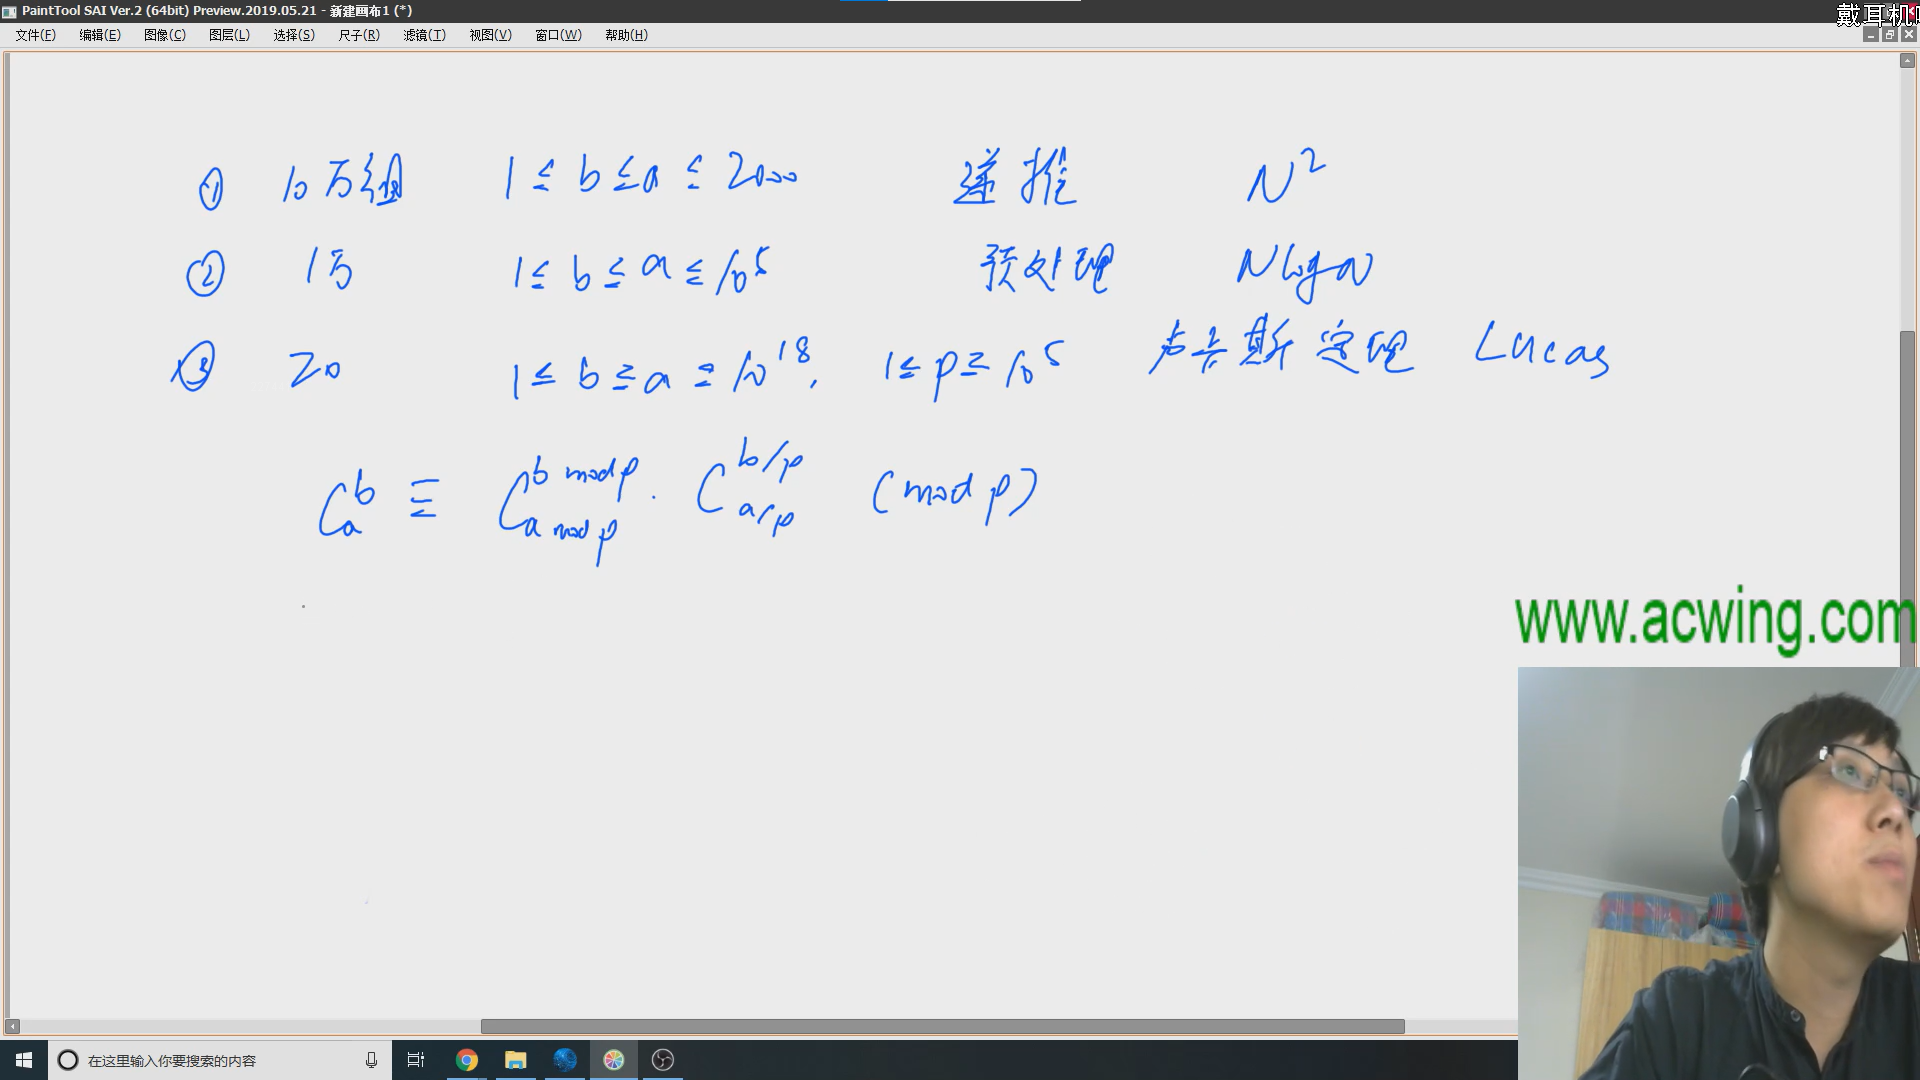 PaintTool SAI Ver.2 (64bit) Preview.2019.05.21 - 新建画布1 (*)
戴耳机
文件(F) 编辑(E) 图像(C) 图层(L) 选择(S) 尺子(R) 滤镜(T) 视图(V) 窗口(W) 帮助(H)
① 10万组 1 ≤ b ≤ a ≤ 2000 递推 N²
② 1万 1 ≤ b ≤ a ≤ 10⁵ 预处理 NlogN
③ 20 1 ≤ b ≤ a ≤ 10¹⁸, 1 ≤ p ≤ 10⁵ 卢卡斯定理 Lucas
C_a^b ≡ C_{a mod p}^{b mod p} · C_{a/p}^{b/p} (mod p)
www.acwing.com
在这里输入你要搜索的内容